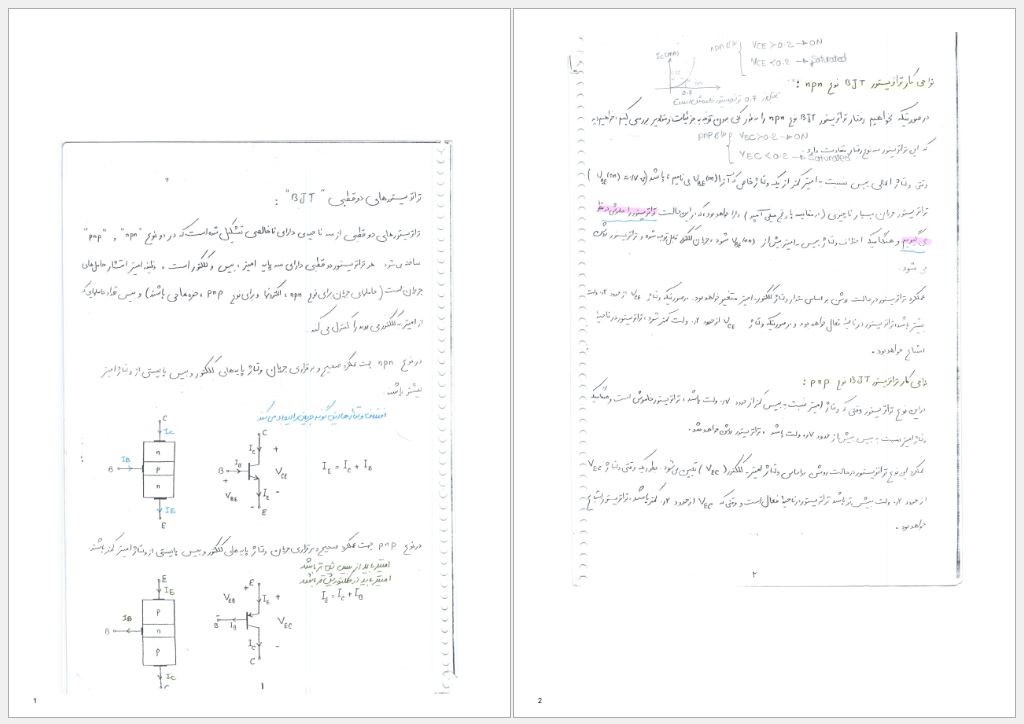 ترانزیستورهای دوقطبی "BJT" :
ترانزیستورهای دوقطبی از سه ناحیه‌ی دارای ناخالصی تشکیل شده است که در دو نوع "npn" و "pnp"
ساخته می‌شود. هر ترانزیستور دوقطبی دارای سه پایه امیتر، بیس و کلکتور است. وظیفه امیتر انتشار حامل‌های
جریان است (حامل‌های جریان برای نوع npn، الکترونها و برای نوع pnp، حفره‌ها می باشند) و بیس تعداد حاملهای که
از امیتر به کلکتور می‌روند را کنترل می کند.
در نوع npn جهت عملکرد صحیح و برقراری جریان ولتاژ پایه‌های کلکتور و بیس بایستی از ولتاژ امیتر
بیشتر باشند.
اختلاف ولتاژها این گونه جریان را ایجاد می‌کند
C
IC
n
p
n
B
IB
IE
E
C
IC
+
B
IB
+
VCE
VBE
-
IE
-
E
IE = IC + IB
در نوع pnp جهت عملکرد صحیح و برقراری جریان ولتاژ پایه‌های کلکتور و بیس بایستی از ولتاژ امیتر کمتر باشند
امیتر باید از بیس + تر باشد
امیتر باید از کلکتور + تر باشد
IE = IC + IB
E
IE
p
n
p
IB
B
IC
C
E
+
IE
+
VEB
VEC
-
B
IB
IC
-
C
1
1
IC(mA)
npn
VCE > 0.2 → ON
VCE < 0.2 → Saturated
نواحی کار ترانزیستور BJT نوع npn :
در صورتیکه بخواهیم رفتار ترانزیستور BJT نوع npn را به طور کلی بدون توجه به جزئیات و مقادیر بررسی کنیم، خواهیم دید
pnp
VEC > 0.2 → ON
که این ترانزیستور سه نوع رفتار متفاوت دارد.
VEC < 0.2 → Saturated
وقتی ولتاژ اعمالی بیس نسبت به امیتر کمتر از یک ولتاژ خاص که آنرا VBE(on) می نامیم، باشد
ترانزیستور جریان بسیار ناچیزی (در مقایسه با رنج میلی آمپر) دارا خواهد بود که در این حالت ترانزیستور را خاموش در نظر
می گیریم و هنگامیکه اختلاف ولتاژ بیس به امیتر بیش از VBE(on) شود، جریان کلکتور قابل توجه شده و ترانزیستور روشن
می شود.
عملکرد ترانزیستور در حالت روشن بر اساس مقدار ولتاژ کلکتور-امیتر متغیر خواهد بود. در صورتیکه ولتاژ VCE از حدود 0.2 ولت
بیشتر باشد، ترانزیستور در ناحیه فعال خواهد بود و در صورتیکه ولتاژ VCE از حدود 0.2 ولت کمتر شود، ترانزیستور در ناحیه
اشباع خواهد بود.
نواحی کار ترانزیستور BJT نوع pnp :
در این نوع ترانزیستور وقتی که ولتاژ امیتر نسبت به بیس کمتر از حدود 0.7 ولت باشد، ترانزیستور خاموش است و هنگامیکه
ولتاژ امیتر نسبت به بیس بیش از حدود 0.7 ولت باشد، ترانزیستور روشن خواهد شد.
عملکرد این نوع ترانزیستور در حالت روشن بر اساس ولتاژ امیتر-کلکتور (VEC) تعیین می‌شود. بطوریکه وقتی ولتاژ VEC
از حدود 0.2 ولت بیشتر باشد ترانزیستور در ناحیه فعال است و وقتی که VEC از حدود 0.2 کمتر باشد، ترانزیستور اشباع
خواهد بود.
2
2